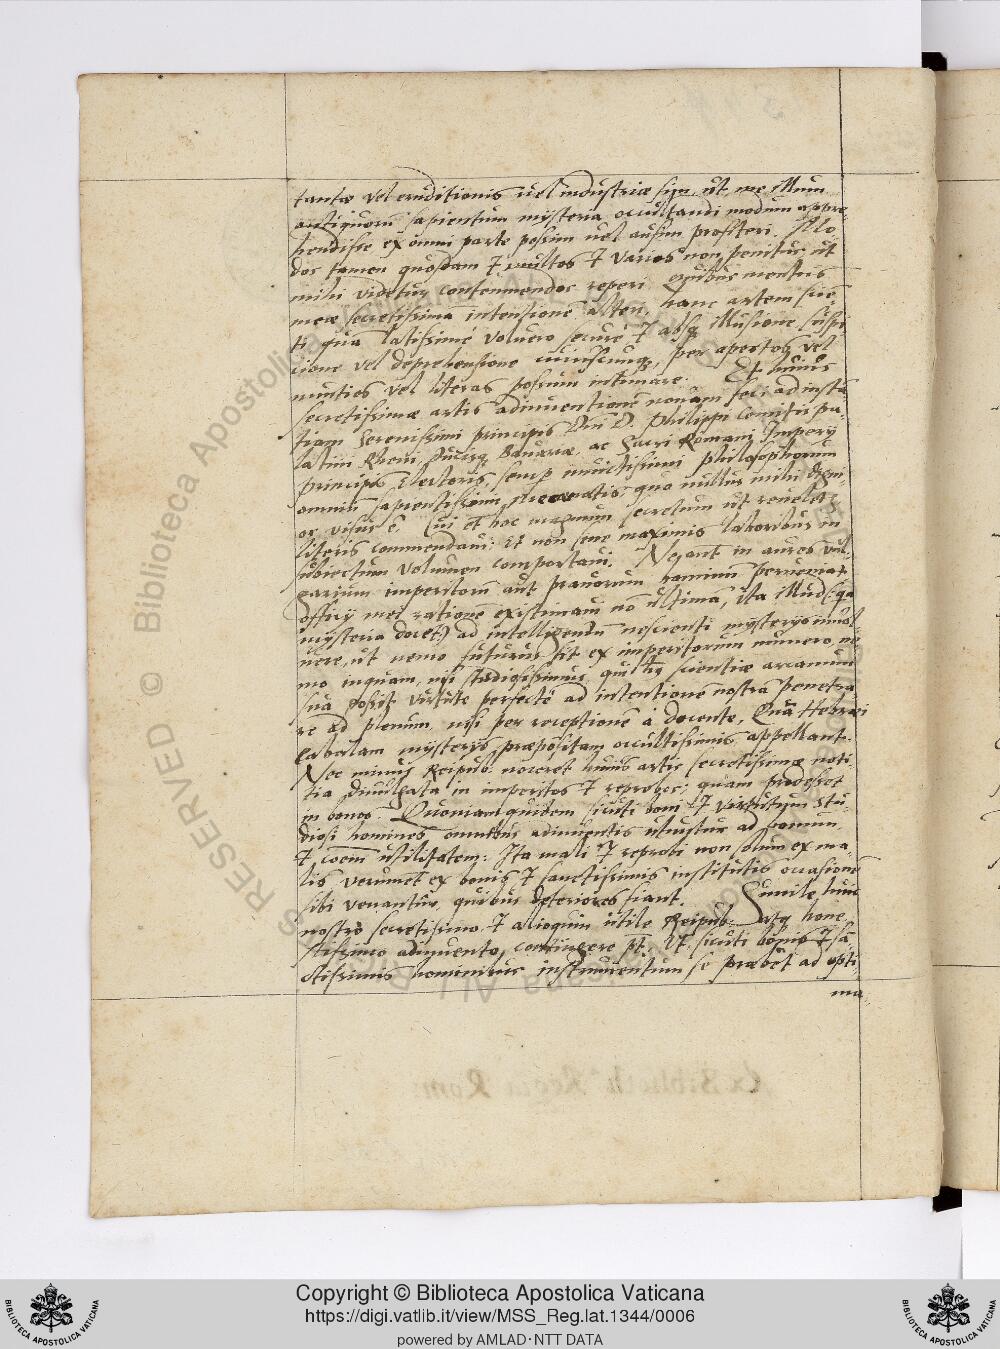 tantæ vel eruditionis vel industriæ sim, ut me illum
antiquorũ sapientum mysteria occultandi modum appre-
hendisse ex omni parte possim vel ausim profiteri. Mo
dos tamen quosdam & multos & varios non penitus ut
mihi videtur contemnendos reperi quibus mentis
meæ secretissimã intentionẽ alteri, hanc artem scie-
ti quã latissimè voluero secure & absq illusione suspi
cione vel deprehensione cuiuscunq, per apertos vel
nuntios vel literas possum intimare. Et huius
secretissimæ artis adinuentionem nouam feci ad instã
tiam Serenissimi principis Dñi D. Philippi Comitis pa-
latini Rheni, Ducisq Bauariæ, ac Sacri Romani Imperij
Principis Electoris, semp inuictissimi philosophorum
omniũ sapientissimi Mecœnatis, quo nullus mihi digni-
or visus ẽ Cui et hoc magnum secretum ut reuelet
literis commendaui: Et non sine maximis laboribus in
subiectum volumen comportaui. Ne aut in aures vul
garium imperitorũ aut prauorum hominũ perueniat
officij mei rationẽ existimaui nõ ultimã, ita illud (qa
mysteria docet) ad intelligendũ nescienti mysterijs inuol
uere, ut nemo futurus sit ex imperitorum numero, ne
mo inquam, nisi studiosissimus, qui hui scientiæ arcanum
sua possit virtute perfectè ad intentionẽ nostrã penetra
re ad plenum, nisi per receptionẽ à docente, Quã Hebræi
Cabalam mysterijs præpositam occultissimis appellant.
Nec minus Reipub: noceret huius artis secretissimæ noti-
tia diuulgata in imperitos & reprobos: quam prodesset
in bonos. Quoniam quidem sicuti boni & virtutum stu
diosi homines omnibus adinuentis utuntur ad bonum,
& coẽm utilitatem: Ita mali & reprobi non solum ex ma-
lis verumet ex bonis & sanctissimis institutis occasionẽ
sibi venantur, quibus deteriores fiant. Simile huic
nostro secretissimo & alioquin utile Reipub: atq hone
stissimo adinuento, contingere pt. Vt sicuti bonis & sã
ctissimis hominibus instrumentum se præbet ad opti
ma
Copyright © Biblioteca Apostolica Vaticana
https://digi.vatlib.it/view/MSS_Reg.lat.1344/0006
powered by AMLAD·NTT DATA